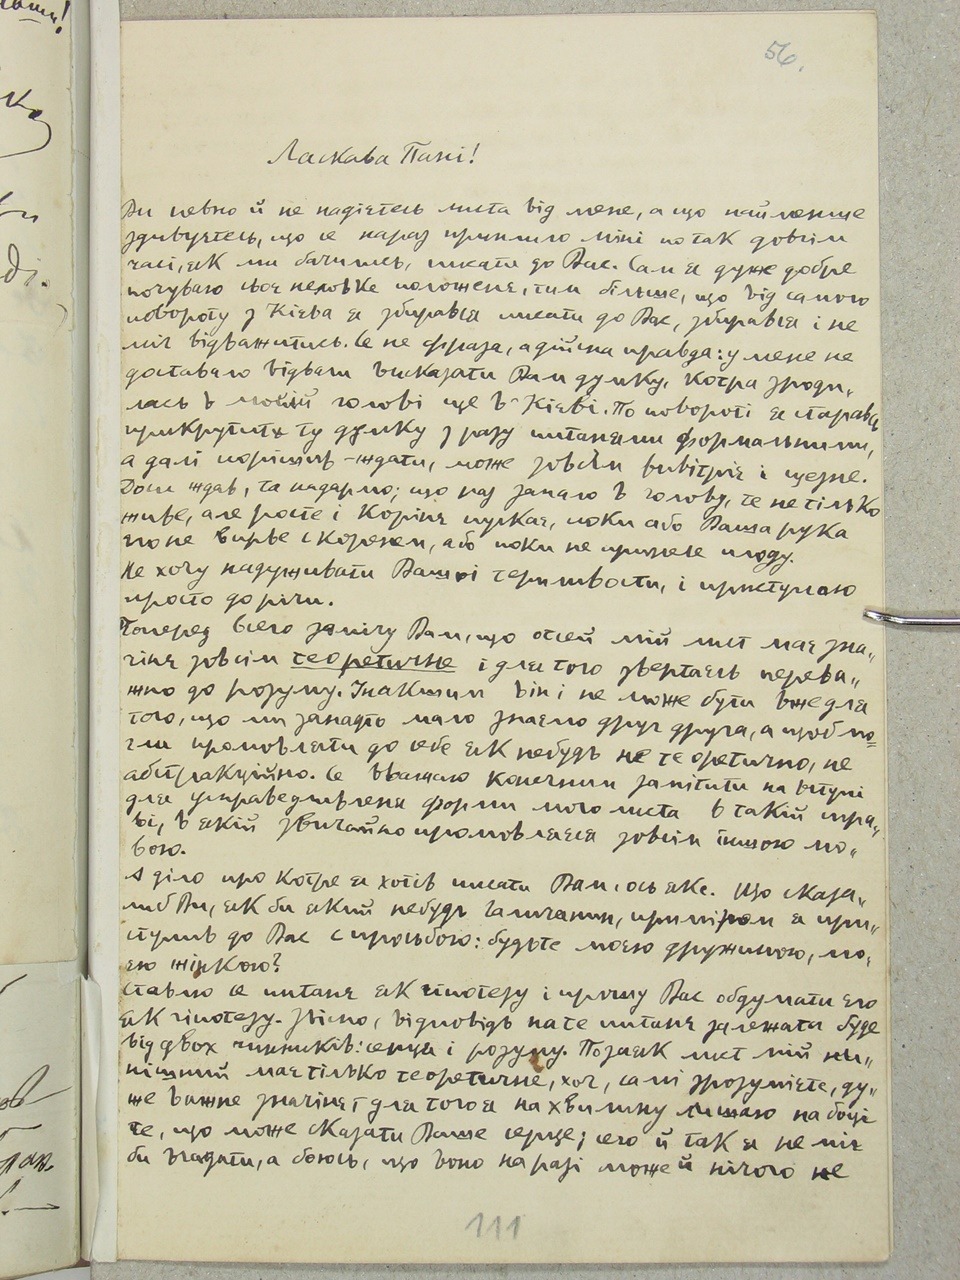 56.
Ласкава Пані!
Ви певно й не надієтесь листа від мене, а що найменше
здивуєтесь, що се нараз прийшло міні по так довгім
часї, як ми бачились, писати до Вас. Сам я дуже добре
почуваю своє неловке положенє, тим більше, що від самого
повороту з Кієва я збирався писати до Вас, збирався і не
міг відважитись. Се не фраза, а дійсна правда: у мене не
доставало відваги висказати Вам думку, котра зроди„
лась в моїй голові ще в Кієві. По повороті я старавсь
прикрутити ту думку з разу питанями формальними,
а далі порішив – ждати, може зовсїм вивітріє і щезне.
Доси ждав, та надармо; що раз запало в голову, те не тілько
живе, але росте і корінє пускає, поки або Ваша рука
єго не вирве с коренем, або поки не принесе плоду.
Не хочу надуживати Вашої терпливости, і приступаю
просто до річи.
Поперед всего замічу Вам, що отсей мій лист має зна„
чінє зовсїм теоретичне і для того звертаєсь перева„
жно до розуму. Інакшим він і не може бути вже для
того, що ми занадто мало знаємо друг друга, а щоб мо=
гли промовляти до себе як небудь не теоретично, не
абстракційно. Се вважаю конечним замітити на вступі
для усправедливленя форми мого листа в такій спра„
ві, в якій звичайно промовляєся зовсїм іншою мо„
вою.
А діло про котре я хотїв писати Вам, ось яке. Що сказа„
либ Ви, як би який небудь Галичанин, приміром я при„
ступив до Вас с просьбою: будьте моєю дружиною, мо„
єю жінкою?
Ставлю се питанє як гіпотезу і прошу Вас обдумати єго
як гіпотезу. Звісно, відповідь на те питанє залежати буде
від двох чинників: серця і розуму. Позаяк лист мій ни„
нїшний має тілько теоретичне, хоч, самі зрозумієте, ду„
же важне значінє, для того я на хвилину лишаю на боці
те, що може сказати Ваше серце; сего й так я не міг
би вгадати, а боюсь, що воно на разі може й нічого не
111